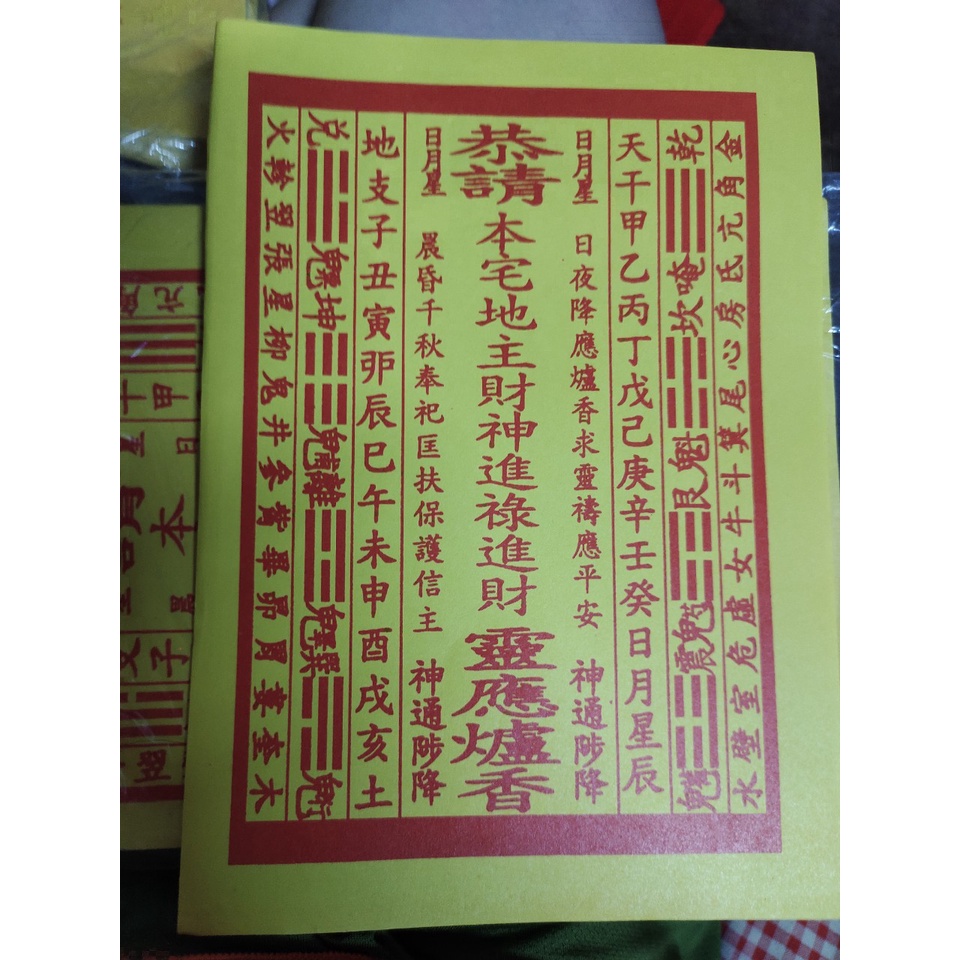 金角亢氐房心尾箕斗牛女虛危室壁水
乾唵坎魁艮震
天干甲乙丙丁戊己庚辛壬癸日月星辰
日月星 日夜降應爐香求靈禱應平安 神通陟降
恭請本宅地主財神進祿進財靈應爐香
日月星 晨昏千秋奉祀匡扶保護信主 神通陟降
地支子丑寅卯辰巳午未申酉戌亥土
兌坤離巽
火軫翌張星柳鬼井參觜畢昴胃婁奎木
甲
日
本
子